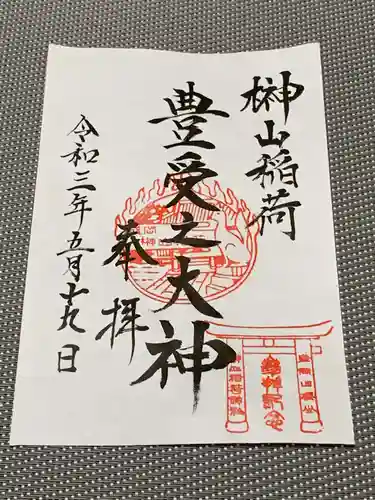 榊山稲荷
豊受之大神
奉拝
令和三年五月十九日
参拝記念